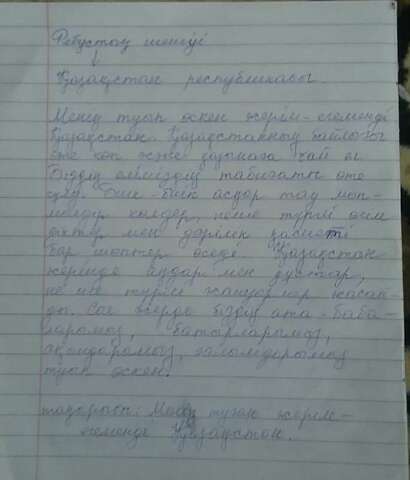 Ребустың шешуі
Қазақстан республикасы.
Менің туып өскен жерім - егеменді
Қазақстан. Қазақстанның байлығы
өте көп және қазынаға бай ел.
Біздің еліміздің табиғаты өте
сұлу. Биік - биік асқар тау мың-
көлдер, неше түрлі өсім
діктер мен дәрілік қасиеті
бар шөптер өседі. Қазақстан
жерінде аңдар мен құстар,
не ше түрлі жануарлар жасай-
ды. Сол жерде біздің ата - баба-
ларымыз, батырларымыз,
ақындарымыз, ғалымдарымыз
туып өскен.
тақырып: Менің туған жерім -
егеменді Қазақстан.